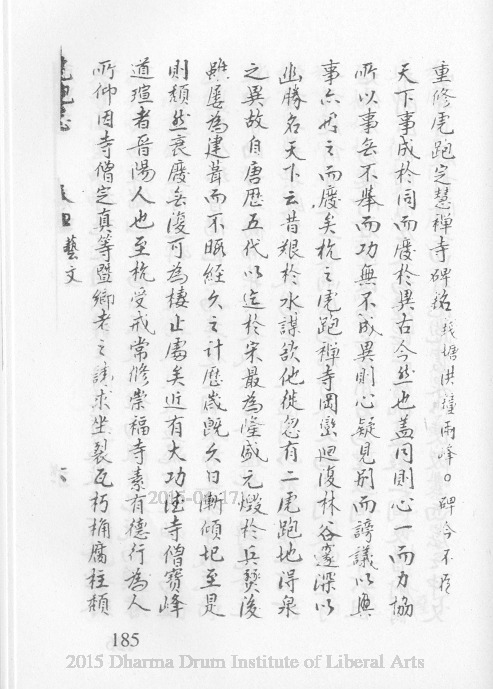 重修虎跑定慧禪寺碑銘 錢塘洪鐘兩峰〇碑今不存
天下事成於同而廢於異古今然也蓋同則心一而力協
所以事無不舉而功無不成異則心疑見別而謗議以興
事亦為之而廢矣杭之虎跑禪寺岡巒迴復林谷邃深以
幽勝名天下云昔艱於水謀欲他徙忽有二虎跑地得泉
之異故自唐歷五代以迄於宋最為隆盛元燬於兵燹後
雖屢為建葺而不暇經久之计歷歲既久日漸傾圮至是
則頹然衰廢無復可為棲止處矣近有大功德寺僧寶峰
道瑄者晉陽人也至杭受戒常修崇福寺素有德行為人
所仰因寺僧定真等暨鄉老之請求坐裂瓦朽桷腐柱頹
虎跑志 藝文 六
2015-04-17
185
2015 Dharma Drum Institute of Liberal Arts